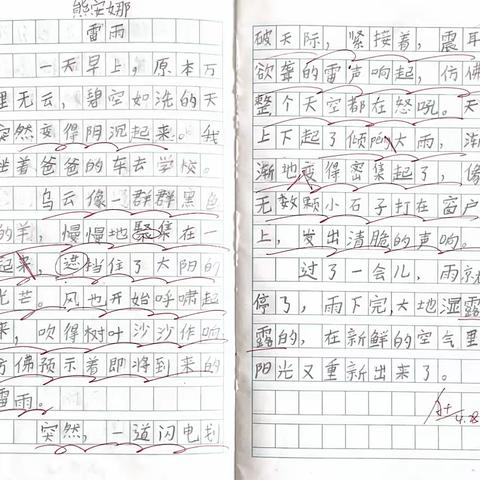 熊安娜
雷雨
一天早上，原本万
里无云，碧空如洗的天
突然变得阴沉起来。我
坐着爸爸的车去学校。
乌云像一群群黑色
的羊，慢慢地聚集在一
起来，遮挡住了大阳的
光芒。风也开始呼啸起
来，吹得树叶沙沙作响
仿佛预示着即将到来的
雷雨。
突然，一道闪电划
破天际，紧接着，震耳
欲聋的雷声响起，仿佛
整个天空都在怒吼。天
上下起了倾盆大雨，渐
渐地变得密集起了，像
无数颗小石子打在窗户
上，发出清脆的声响。
过了一会儿，雨
停了，雨下完，大地湿露
露的，在新鲜的空气里
阳光又重新出来了。